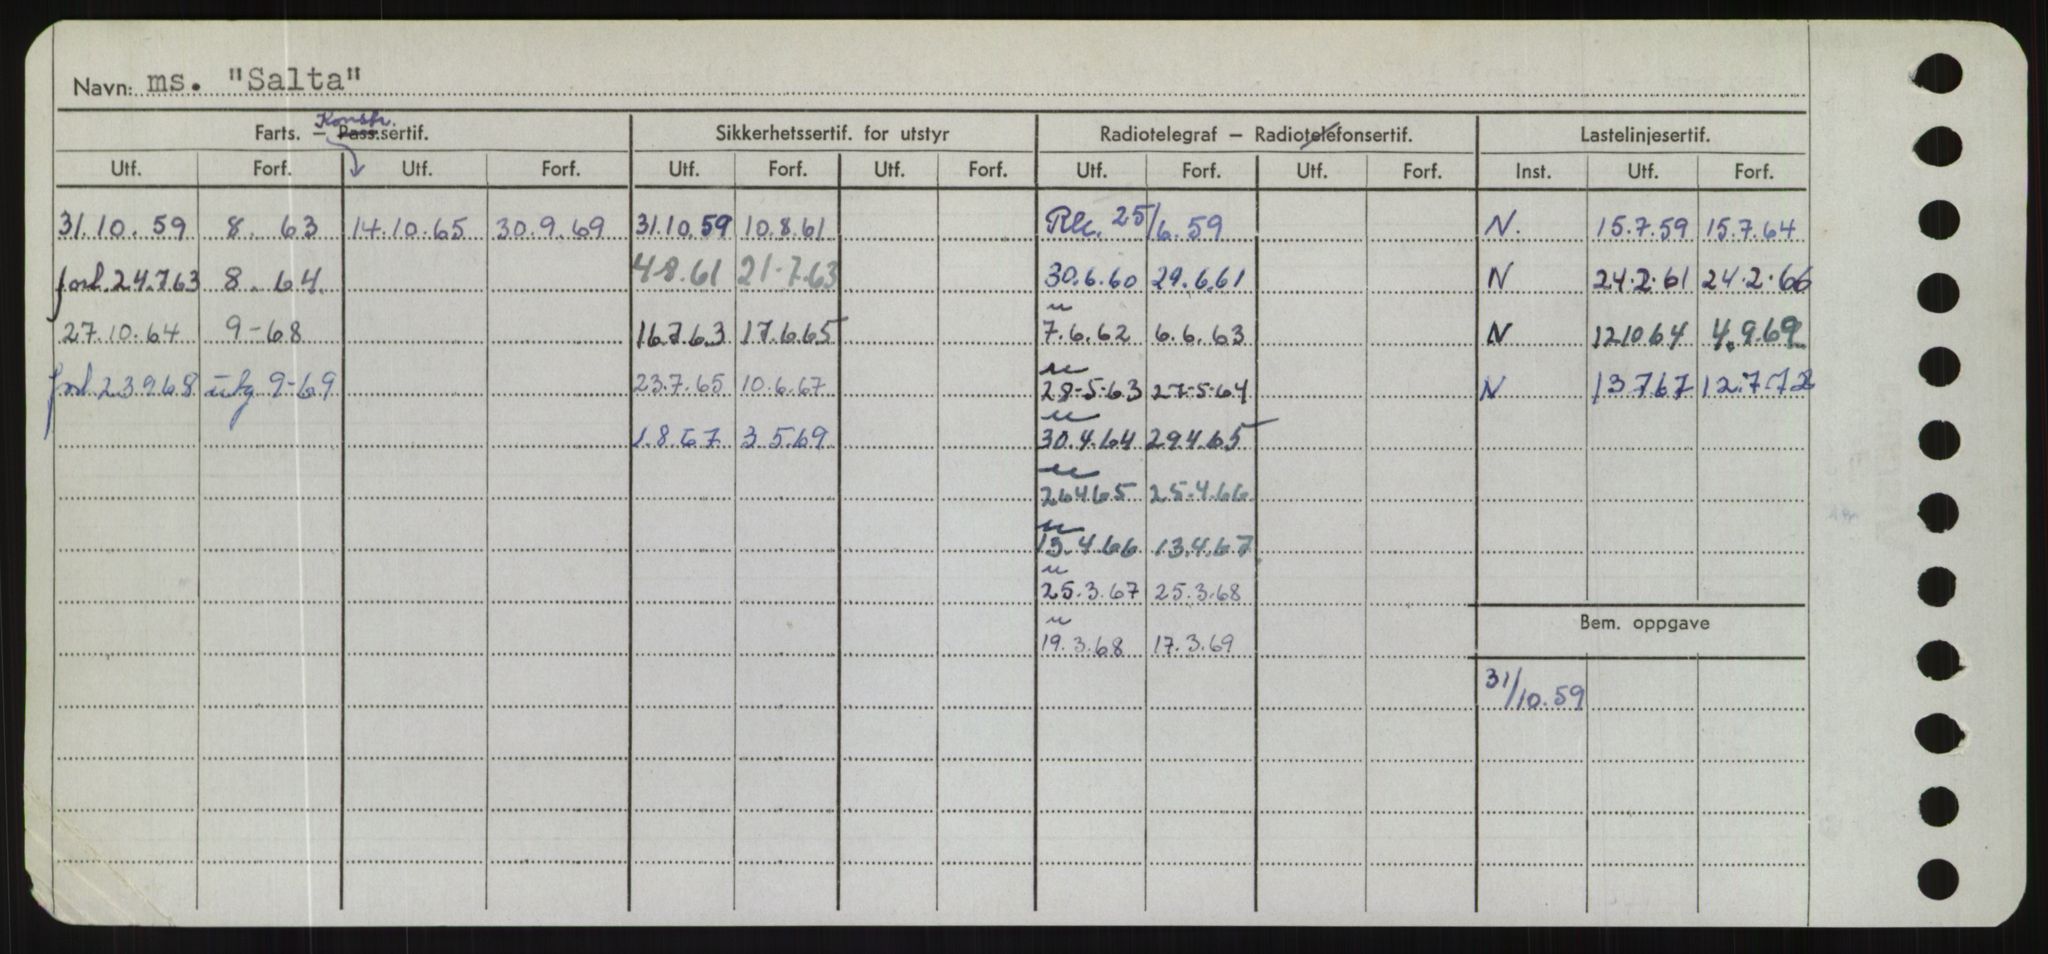 Navn: ms. "Salta"
Konstr.
Farts. – Pass.sertif. Sikkerhetssertif. for utstyr Radiotelegraf – Radiotelefonsertif. Lastelinjesertif.
Utf. Forf. Utf. Forf. Utf. Forf. Utf. Forf. Utf. Forf. Utf. Forf. Inst. Utf. Forf.
31.10.59 8. 63 14.10.65 30.9.69 31.10.59 10.8.61 25/6.59 N. 15.7.59 15.7.64
forl. 24.7.63 8. 64. 4-8.61 21-7.63 30.6.60 29.6.61 N 24.2.61 24.2.66
27.10.64 9-68 16.7.63 17.6.65 7.6.62 6.6.63 N 12.10.64 4.9.69
forl. 23.9.68 utg 9-69 23.7.65 10.6.67 28-5-63 27-5-64 N 13.7.67 12.7.72
1.8.67 3.5.69 30.4.64 29.4.65
26.4.65 25.4.66
13.4.66 13.4.67
25.3.67 25.3.68
Bem. oppgave
19.3.68 17.3.69
31/10.59